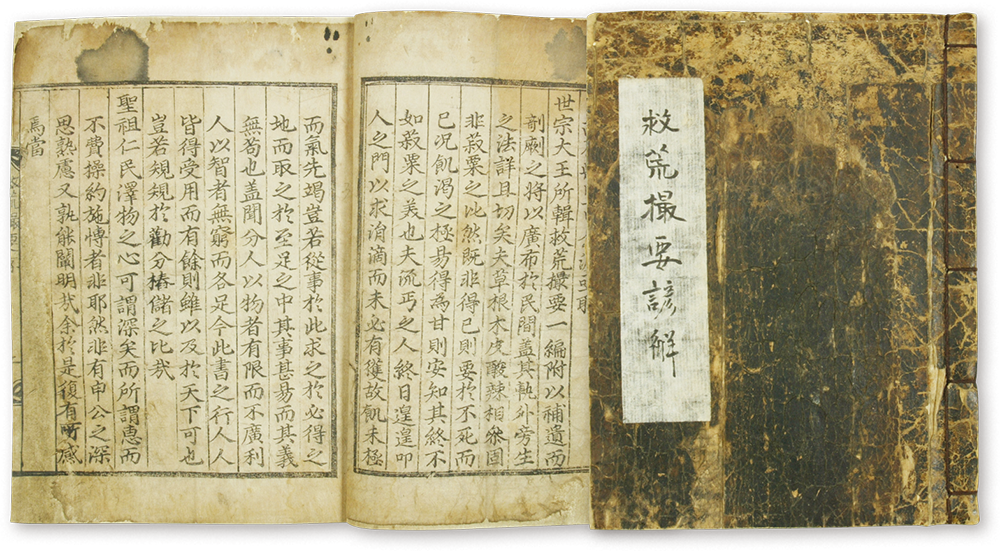 救荒撮要諺解
世宗大王所輯救荒撮要一編附以補遺而
剞劂之將以廣布於民間盖其執外旁生
之法詳且切矣夫草根木皮酸辣相叅固
非菽粟之比然既非得已則要於不死而
已况飢渴之極易得為甘則安知其終不
如菽粟之美也夫流丐之人終日遑遑叩
人之門以求涓滴而未必有獲故飢未極
而氣先竭豈若從事於此求之於必得之
地而取之於至足之中其事甚易而其義
無苟也盖聞分人以物者有限而不廣利
人以智者無窮而各足今此書之行人人
皆得受用而有餘則雖以及於天下可也
豈若規規於勸分椿儲之比哉
聖祖仁民澤物之心可謂深矣而所謂惠而
不費操約施博者非耶然非有申公之深
思熟慮又孰能闡明哉余於是復有所感
焉當